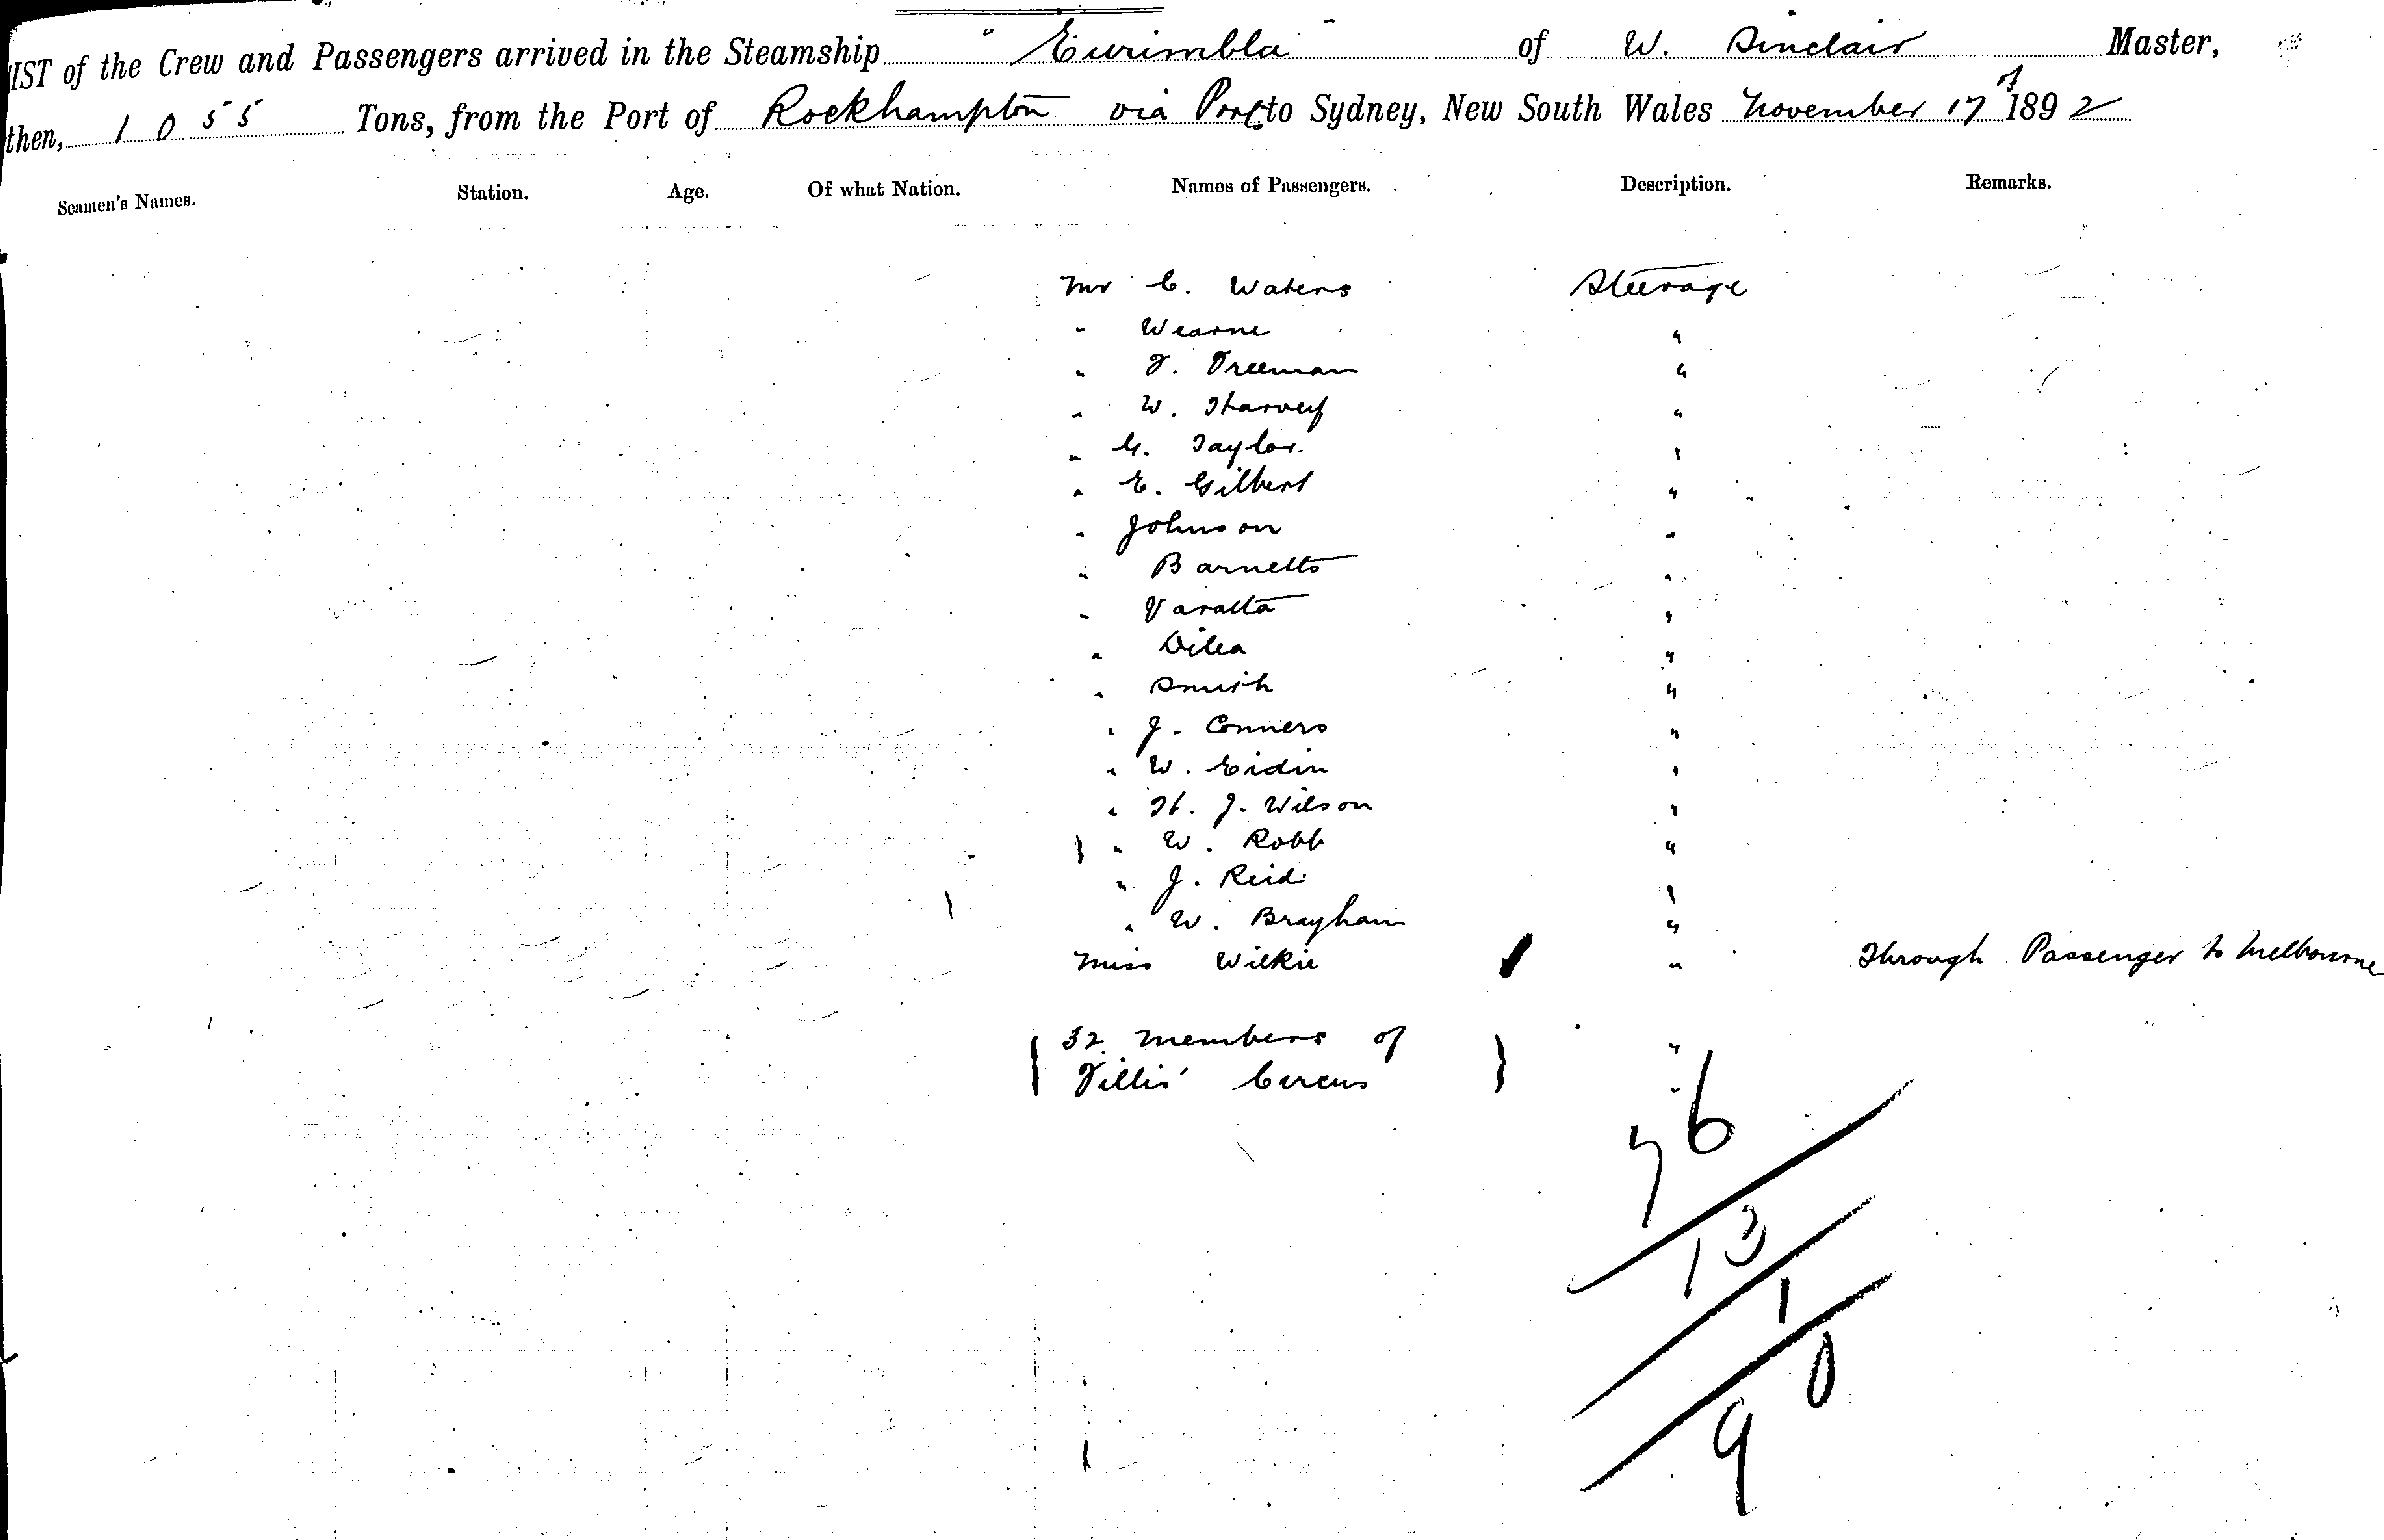 IST of the Crew and Passengers arrived in the Steamship "Eurimbla" of W. Sinclair Master,
then, 1055 Tons, from the Port of Rockhampton via Ports to Sydney, New South Wales November 17 1892
Seamen's Names. Station. Age. Of what Nation. Names of Passengers. Description. Remarks.
Mr C. Waters Steerage
" Wearne "
" F. Freeman "
" W. Harvey "
" G. Taylor "
" E. Gilbert "
" Johnson "
" Barnetto "
" Varatta "
" "
" Smith "
" J. Conners "
" W. Eidin "
" H. J. Wilson "
" W. Robb "
" J. Reid "
" W. Brayham "
Miss Wilkie " Through Passenger to Melbourne
32 Members of "
Fillis' Circus "
76
13
1
90